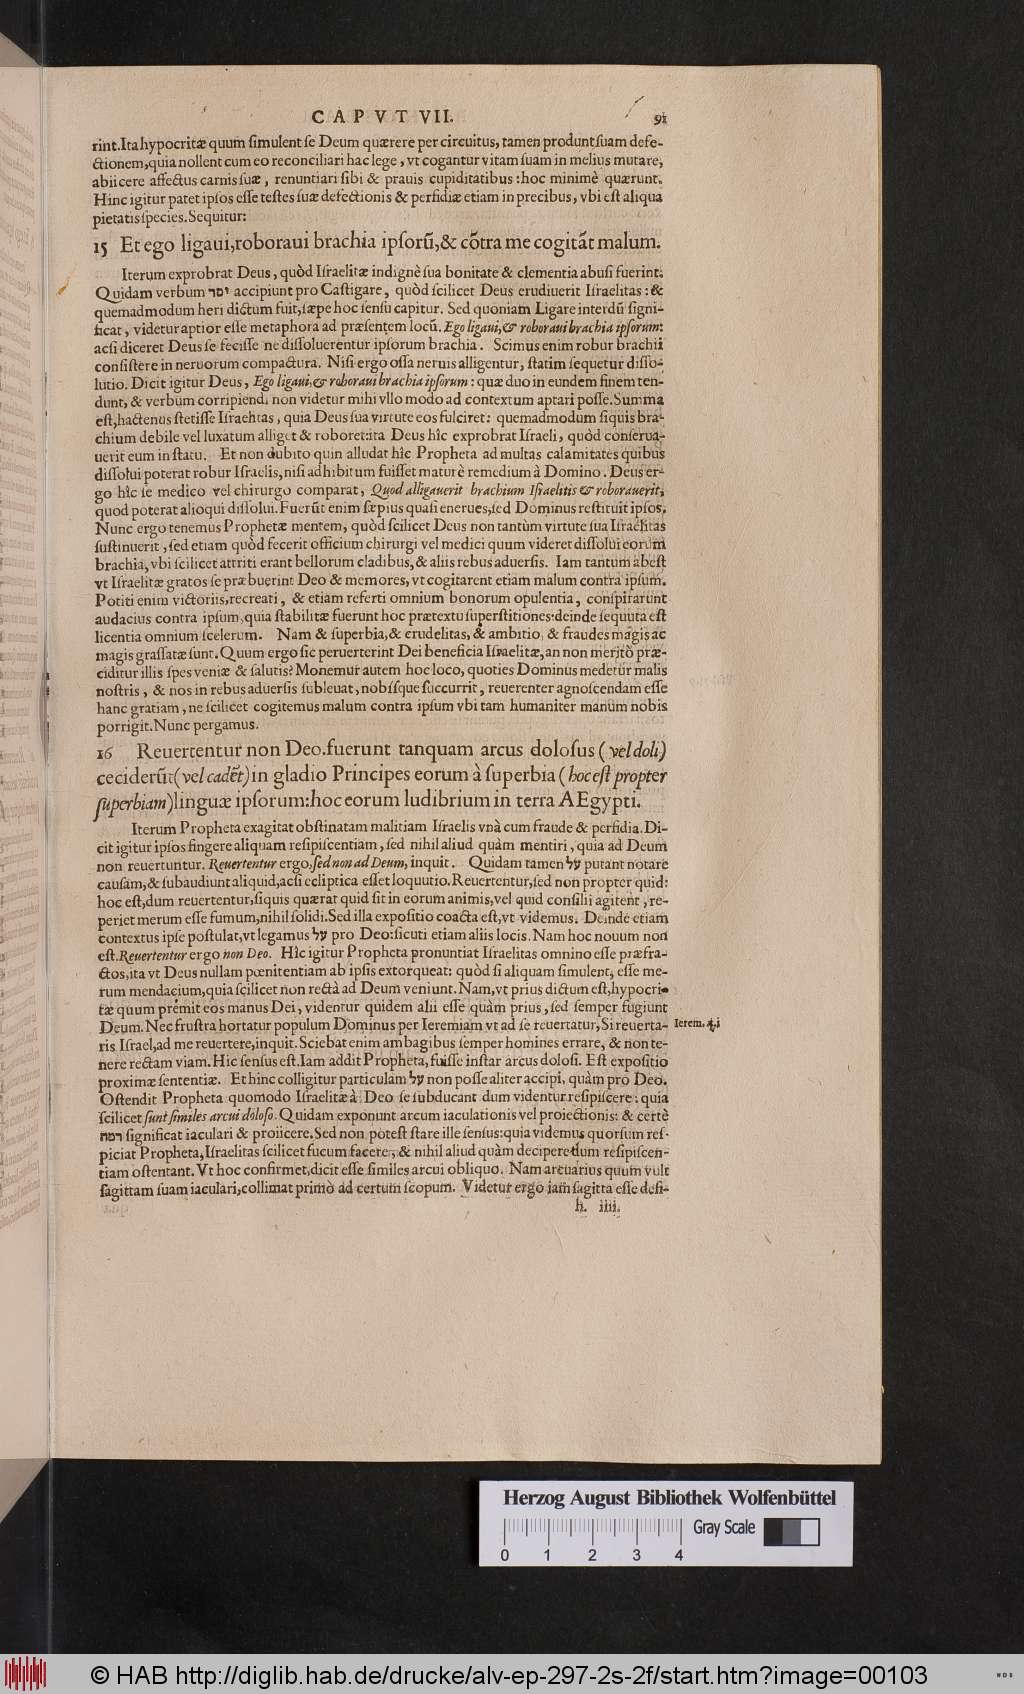 CAPVT VII. 91
rint. Ita hypocritæ quum ſimulent ſe Deum quærere per circuitus, tamen produnt ſuam defe-
ctionem, quia nollent cum eo reconciliari hac lege, vt cogantur vitam ſuam in melius mutare,
abiicere affectus carnis ſuæ, renuntiari ſibi & prauis cupiditatibus: hoc minimè quærunt.
Hinc igitur patet ipſos eſſe teſtes ſuæ defectionis & perfidiæ etiam in precibus, vbi eſt aliqua
pietatis ſpecies. Sequitur:
15 Et ego ligaui, roboraui brachia ipſorũ, & cõtra me cogitãt malum.
Iterum exprobrat Deus, quòd Iſraelitæ indignè ſua bonitate & clementia abuſi fuerint.
Quidam verbum יסר accipiunt pro Caſtigare, quòd ſcilicet Deus erudiuerit Iſraelitas: &
quemadmodum heri dictum fuit, ſæpe hoc ſenſu capitur. Sed quoniam Ligare interdũ ſigni-
ficat, videtur aptior eſſe metaphora ad præſentem locũ. Ego ligaui, & roboraui brachia ipſorum:
acſi diceret Deus ſe feciſſe ne diſſoluerentur ipſorum brachia. Scimus enim robur brachii
conſiſtere in neruorum compactura. Niſi ergo oſſa neruis alligentur, ſtatim ſequetur diſſo-
lutio. Dicit igitur Deus, Ego ligaui, & roboraui brachia ipſorum: quæ duo in eundem finem ten-
dunt, & verbum corripiendi non videtur mihi vllo modo ad contextum aptari poſſe. Summa
eſt, hactenus ſtetiſſe Iſraelitas, quia Deus ſua virtute eos fulciret: quemadmodum ſiquis bra-
chium debile vel luxatum alliget & roboret: ita Deus hîc exprobrat Iſraeli, quòd conſerua-
uerit eum in ſtatu. Et non dubito quin alludat hîc Propheta ad multas calamitates quibus
diſſolui poterat robur Iſraelis, niſi adhibitum fuiſſet maturè remedium à Domino. Deus er-
go hîc ſe medico vel chirurgo comparat, Quod alligauerit brachium Iſraelitis & roborauerit,
quod poterat alioqui diſſolui. Fuerũt enim ſæpius quaſi enerues, ſed Dominus reſtituit ipſos.
Nunc ergo tenemus Prophetæ mentem, quòd ſcilicet Deus non tantùm virtute ſua Iſraelitas
ſuſtinuerit, ſed etiam quòd fecerit officium chirurgi vel medici quum videret diſſolui eorum
brachia, vbi ſcilicet attriti erant bellorum cladibus, & aliis rebus aduerſis. Iam tantum abeſt
vt Iſraelitæ gratos ſe præbuerint Deo & memores, vt cogitarent etiam malum contra ipſum.
Potiti enim victoriis, recreati, & etiam referti omnium bonorum opulentia, conſpirarunt
audacius contra ipſum, quia ſtabilitæ fuerunt hoc prætextu ſuperſtitiones: deinde ſequuta eſt
licentia omnium ſcelerum. Nam & ſuperbia, & crudelitas, & ambitio, & fraudes magis ac
magis graſſatæ ſunt. Quum ergo ſic peruerterint Dei beneficia Iſraelitæ, an non meritò præ-
ciditur illis ſpes veniæ & ſalutis? Monemur autem hoc loco, quoties Dominus medetur malis
noſtris, & nos in rebus aduerſis ſubleuat, nobíſque ſuccurrit, reuerenter agnoſcendam eſſe
hanc gratiam, ne ſcilicet cogitemus malum contra ipſum vbi tam humaniter manum nobis
porrigit. Nunc pergamus.
16 Reuertentur non Deo. fuerunt tanquam arcus doloſus (vel doli)
ceciderũt (vel cadẽt) in gladio Principes eorum à ſuperbia (hoc eſt propter
ſuperbiam) linguæ ipſorum: hoc eorum ludibrium in terra AEgypti.
Iterum Propheta exagitat obſtinatam malitiam Iſraelis vnà cum fraude & perfidia. Di-
cit igitur ipſos fingere aliquam reſipiſcentiam, ſed nihil aliud quàm mentiri, quia ad Deum
non reuertuntur. Reuertentur ergo, ſed non ad Deum, inquit. Quidam tamen על putant notare
cauſam, & ſubaudiunt aliquid, acſi ecliptica eſſet loquutio. Reuertentur, ſed non propter quid:
hoc eſt, dum reuertentur, ſiquis quærat quid ſit in eorum animis, vel quid conſilii agitent, re-
periet merum eſſe fumum, nihil ſolidi. Sed illa expoſitio coacta eſt, vt videmus. Deinde etiam
contextus ipſe poſtulat, vt legamus על pro Deo: ſicuti etiam aliis locis. Nam hoc nouum non
eſt. Reuertentur ergo non Deo. Hîc igitur Propheta pronuntiat Iſraelitas omnino eſſe præfra-
ctos, ita vt Deus nullam pœnitentiam ab ipſis extorqueat: quòd ſi aliquam ſimulent, eſſe me-
rum mendacium, quia ſcilicet non rectà ad Deum veniunt. Nam, vt prius dictum eſt, hypocri-
tæ quum premit eos manus Dei, videntur quidem alii eſſe quàm prius, ſed ſemper fugiunt
Deum. Nec fruſtra hortatur populum Dominus per Ieremiam vt ad ſe reuertatur, Si reuerta- Ierem. 4. i
ris Iſrael, ad me reuertere, inquit. Sciebat enim ambagibus ſemper homines errare, & non te-
nere rectam viam. Hic ſenſus eſt. Iam addit Propheta, fuiſſe inſtar arcus doloſi. Eſt expoſitio
proximæ ſententiæ. Et hinc colligitur particulam על non poſſe aliter accipi, quàm pro Deo.
Oſtendit Propheta quomodo Iſraelitæ à Deo ſe ſubducant dum videntur reſipiſcere: quia
ſcilicet ſunt ſimiles arcui doloſo. Quidam exponunt arcum iaculationis vel proiectionis: & certè
רמה ſignificat iaculari & proiicere. Sed non poteſt ſtare ille ſenſus: quia videmus quorſum reſ-
piciat Propheta, Iſraelitas ſcilicet fucum facere, & nihil aliud quàm decipere dum reſipiſcen-
tiam oſtentant. Vt hoc confirmet, dicit eſſe ſimiles arcui obliquo. Nam arcuarius quum vult
ſagittam ſuam iaculari, collimat primò ad certum ſcopum. Videtur ergo iam ſagitta eſſe deſi-
h. iiii.
Herzog August Bibliothek Wolfenbüttel
Gray Scale
0 1 2 3 4
© HAB http://diglib.hab.de/drucke/alv-ep-297-2s-2f/start.htm?image=00103